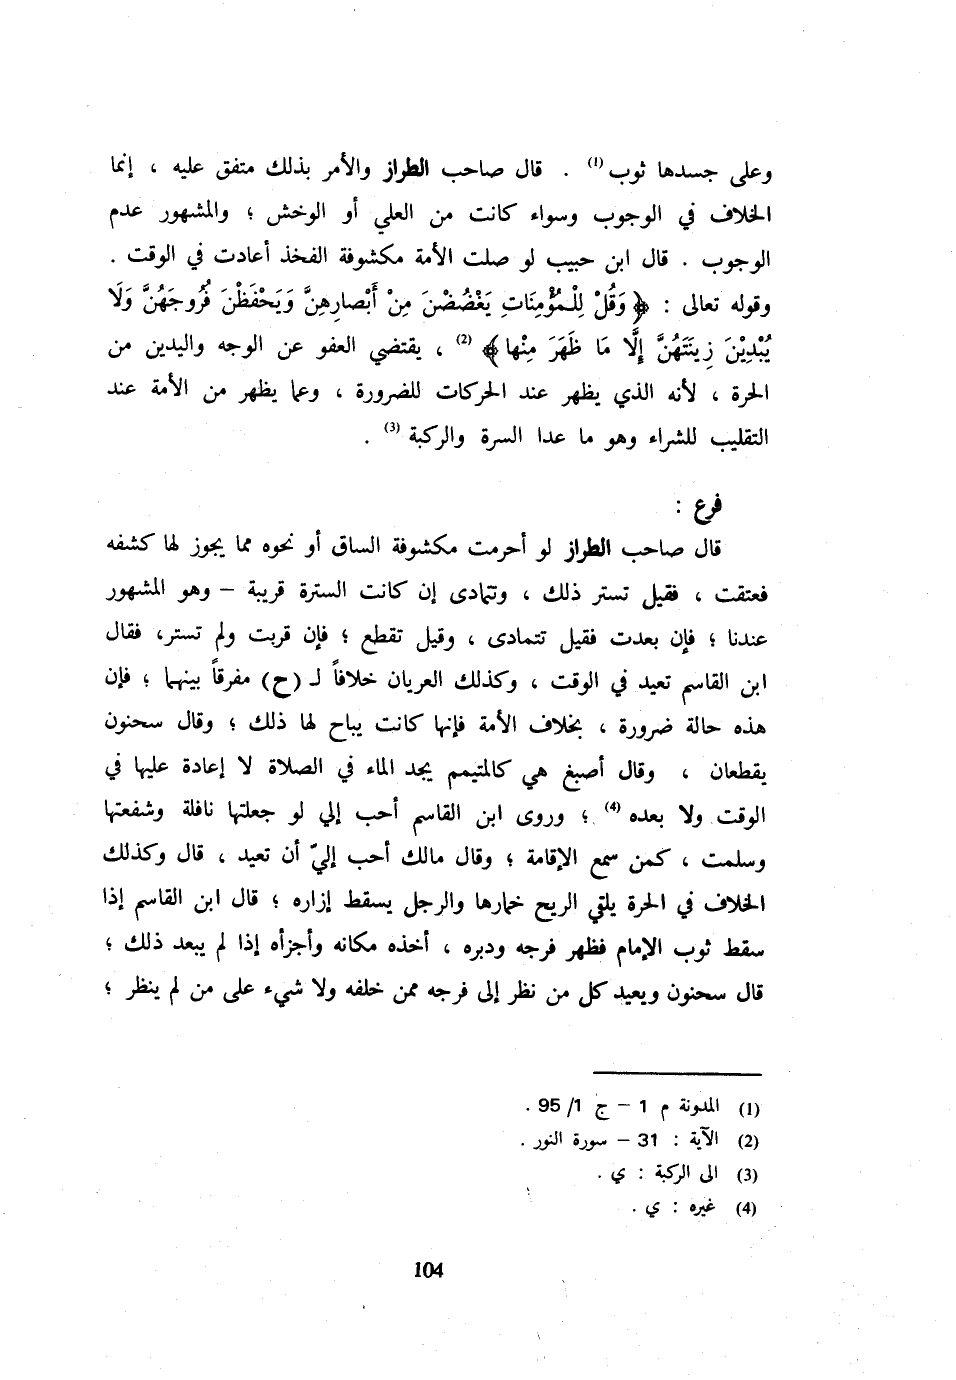 وعلى جسدها ثوب (1) . قال صاحب الطراز والأمر بذلك متفق عليه ، إنما
الخلاف في الوجوب وسواء كانت من العلي أو الوخش ؛ والمشهور عدم
الوجوب . قال ابن حبيب لو صلت الأمة مكشوفة الفخذ أعادت في الوقت .
وقوله تعالى : ﴿ وَقُلْ لِلْمُؤْمِنَاتِ يَغْضُضْنَ مِنْ أَبْصارِهِنَّ وَيَحْفَظْنَ فُرُوجَهُنَّ وَلَا
يُبْدِيْنَ زِينَتَهُنَّ إِلَّا مَا ظَهَرَ مِنْها ﴾ (2) ، يقتضي العفو عن الوجه واليدين من
الحرة ، لأنه الذي يظهر عند الحركات للضرورة ، وعما يظهر من الأمة عند
التقليب للشراء وهو ما عدا السرة والركبة (3) .
فرع :
قال صاحب الطراز لو أحرمت مكشوفة الساق أو نحوه مما يجوز لها كشفه
فعتقت ، فقيل تستر ذلك ، وتتمادى إن كانت السترة قريبة – وهو المشهور
عندنا ؛ فإن بعدت فقيل تتمادى ، وقيل تقطع ؛ فإن قربت ولم تستر، فقال
ابن القاسم تعيد في الوقت ، وكذلك العريان خلافاً لـ (ح) مفرقاً بينهما ؛ فإن
هذه حالة ضرورة ، بخلاف الأمة فإنها كانت يباح لها ذلك ؛ وقال سحنون
يقطعان ، وقال أصبغ هي كالمتيمم يجد الماء في الصلاة لا إعادة عليها في
الوقت ولا بعده (4) ؛ وروى ابن القاسم أحب إلي لو جعلتها نافلة وشفعتها
وسلمت ، كمن سمع الإقامة ؛ وقال مالك أحب إليّ أن تعيد ، قال وكذلك
الخلاف في الحرة يلقي الريح خمارها والرجل يسقط إزاره ؛ قال ابن القاسم إذا
سقط ثوب الإمام فظهر فرجه ودبره ، أخذه مكانه وأجزأه إذا لم يبعد ذلك ؛
قال سحنون ويعيد كل من نظر إلى فرجه ممن خلفه ولا شيء على من لم ينظر ؛
(1) المدونة م 1 – ج 1/ 95 .
(2) الآية : 31 – سورة النور .
(3) الى الركبة : ي .
(4) غيره : ي .
104